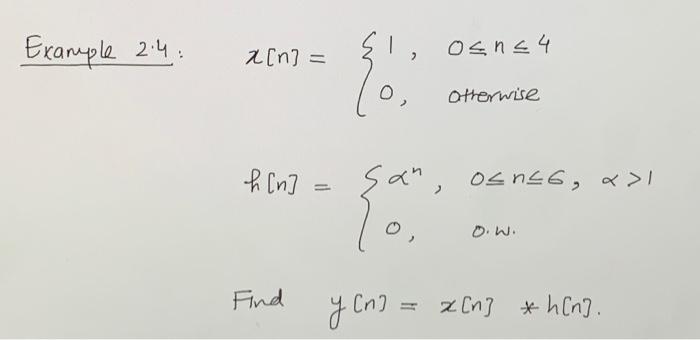 Example 2.4: x[n] = { 1, 0≤n≤4
0, otherwise
h[n] = { αⁿ, 0≤n≤6, α>1
0, O.W.
Find y[n] = x[n] * h[n].